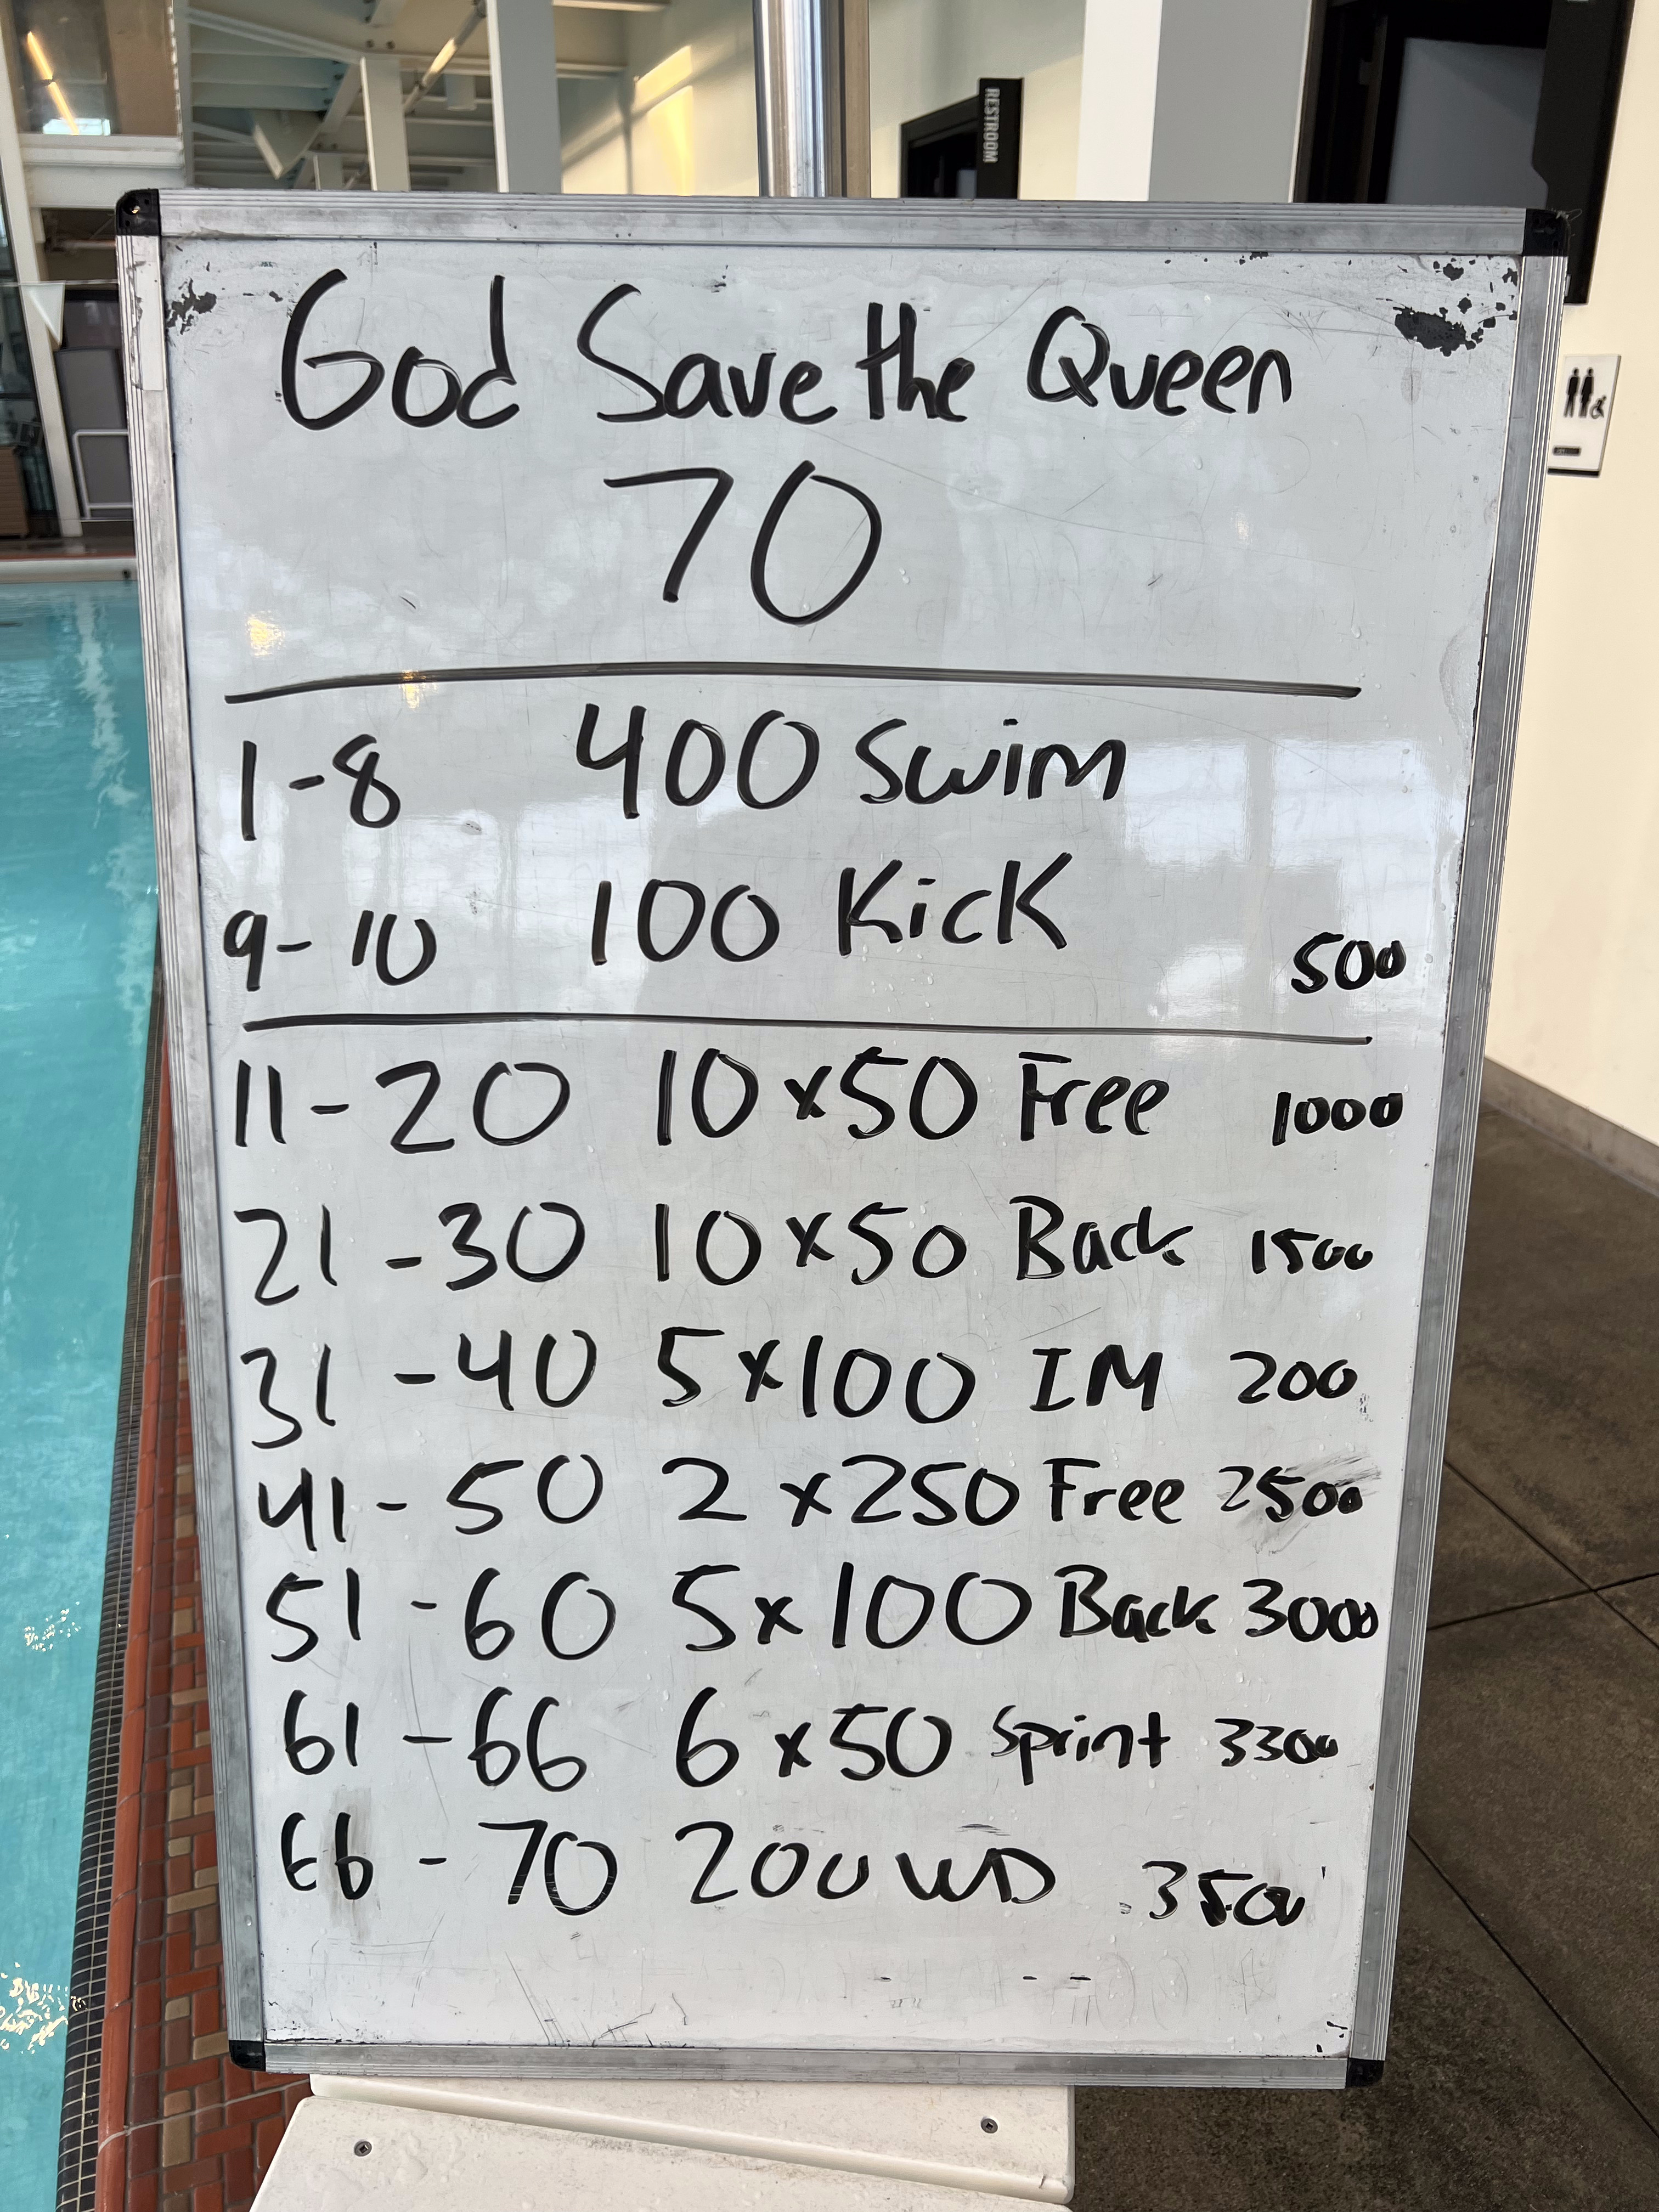 RESTROOM
God Save the Queen
70
1-8 400 Swim
9-10 100 Kick 500
11-20 10x50 Free 1000
21-30 10x50 Back 1500
31-40 5x100 IM 200
41-50 2x250 Free 2500
51-60 5x100 Back 3000
61-66 6x50 Sprint 3300
66-70 200 WD 3500